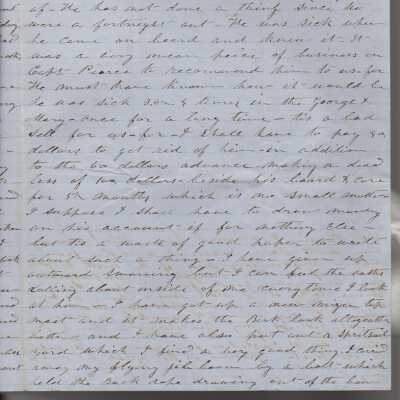 of - He has not done a thing since we
were a fortnight out - He was sick when
he came on board and knew it - It
was a very mean peice of business in
Capt Pearce to recommend him to us - for
He must have known how it would be
he was sick 3 on & times in the George &
Mary - once for a long time - tis a bad
sell for us - for I shall have to pay
dollars to get rid of him in addition
to the 60 dollars advance making a dead
loss of dollars beside his board & care
for 5 months which is no small matter
I suppose I shall have to draw money
on his account if for nothing else -
but tis a waste of good paper to write
about such a thing - I have given up
outward swearing but I can feel the oaths
rolling about inside of me everytime I look
at him - I have got up a new mizen top
mast and it makes the Bark look altogether
better and I have also put out a Spritsail
yard which I find a very good thing I carried
away my flying jib boom by a bolt which
held the back rope drawing out of the bow